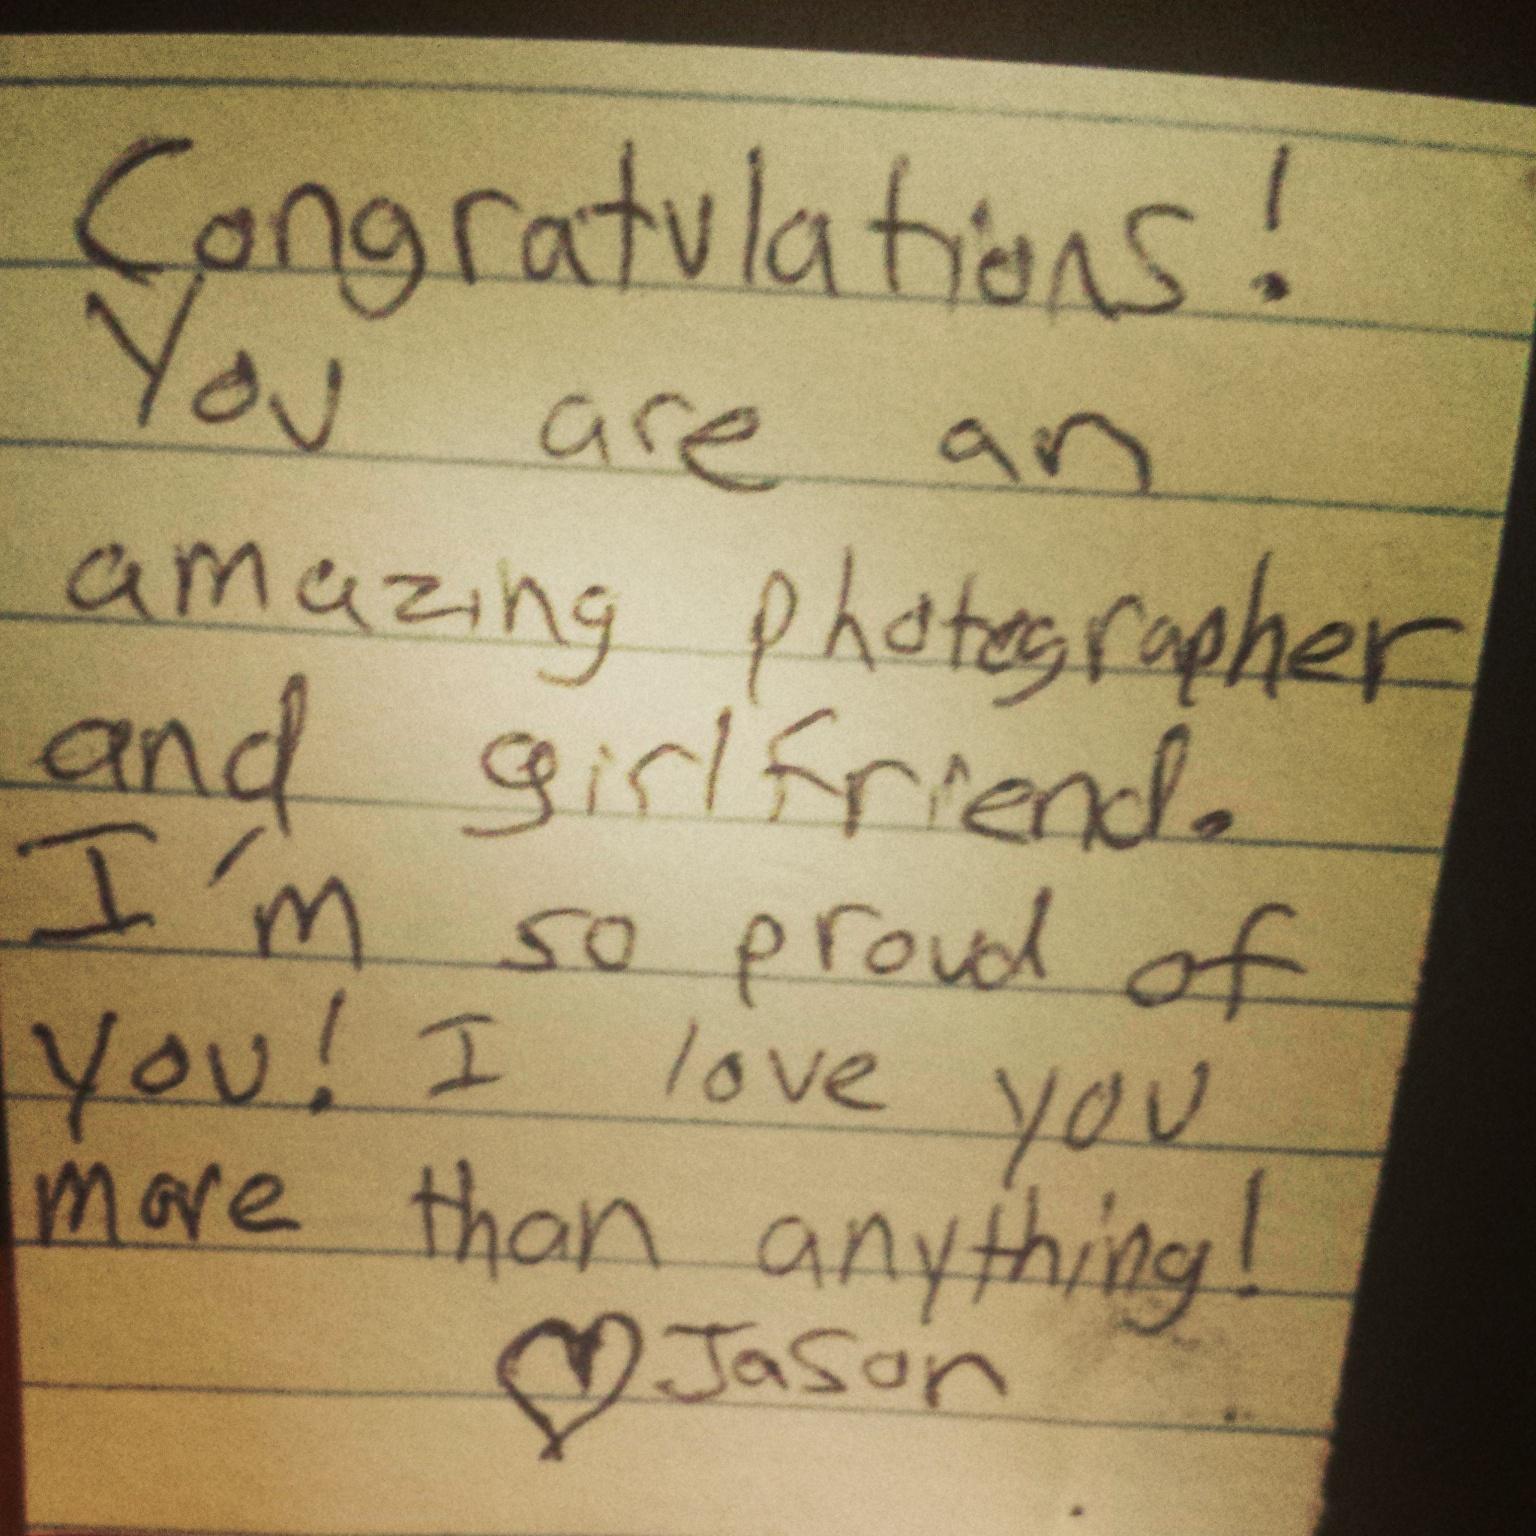 Congratulations!
You are an
amazing photographer
and girlfriend.
I'm so proud of
you! I love you
more than anything!
♡Jason